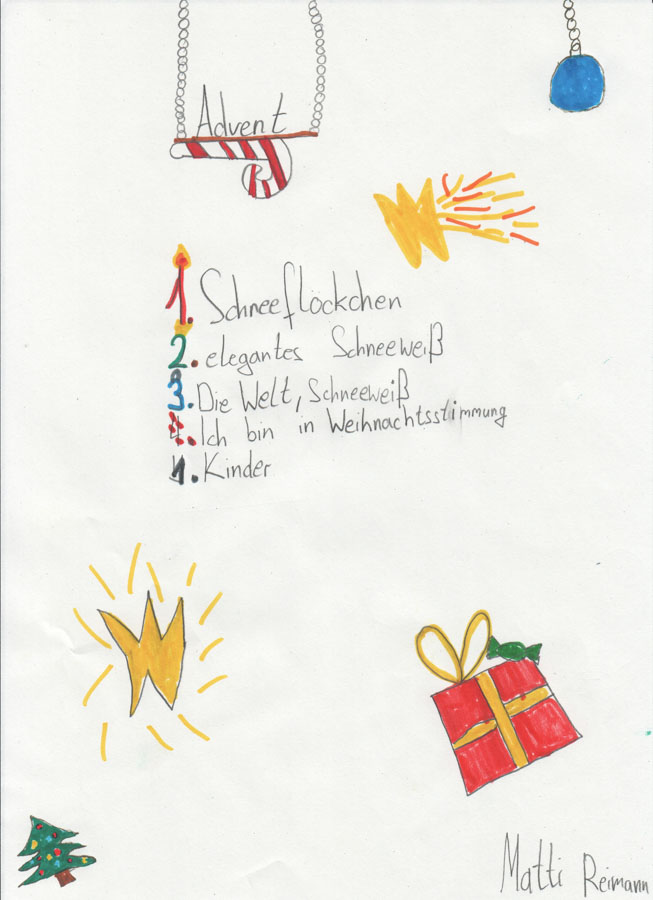 Advent
1. Schneeflöckchen
2. elegantes Schneeweiß
3. Die Welt, Schneeweiß
4. Ich bin in Weihnachtsstimmung
1. Kinder
Matti Reimann